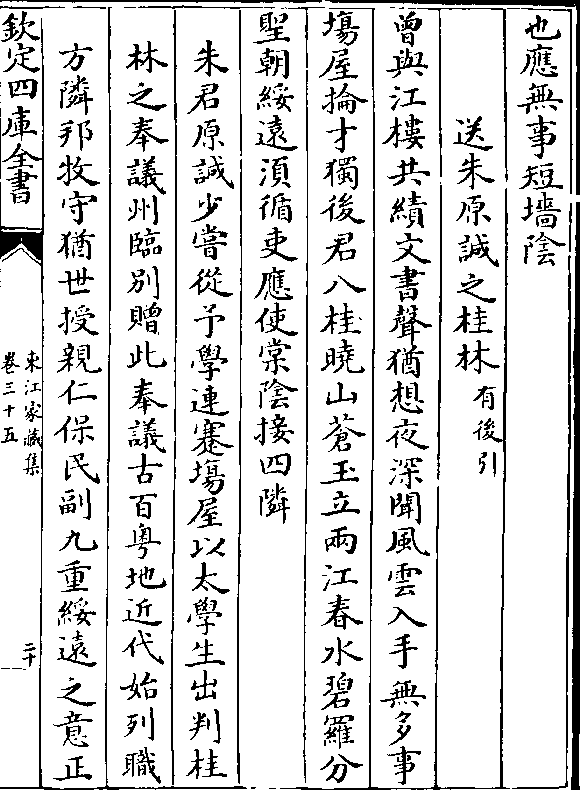 也應無事短墻陰
送朱原誠之桂林有後引
曾與江樓共績文書聲猶想夜深聞風雲入手無多事
塲屋掄才獨後君八桂曉山蒼玉立兩江春水碧羅分
聖朝綏遠湏循吏應使棠陰接四隣
朱君原誠少嘗從予學連蹇塲屋以太學生出判桂
林之奉議州臨别贈此奉議古百粤地近代始列職
方隣邦牧守猶世授親仁保民副九重綏遠之意正
欽定四庫全書
東江家藏集
卷三十五
二十